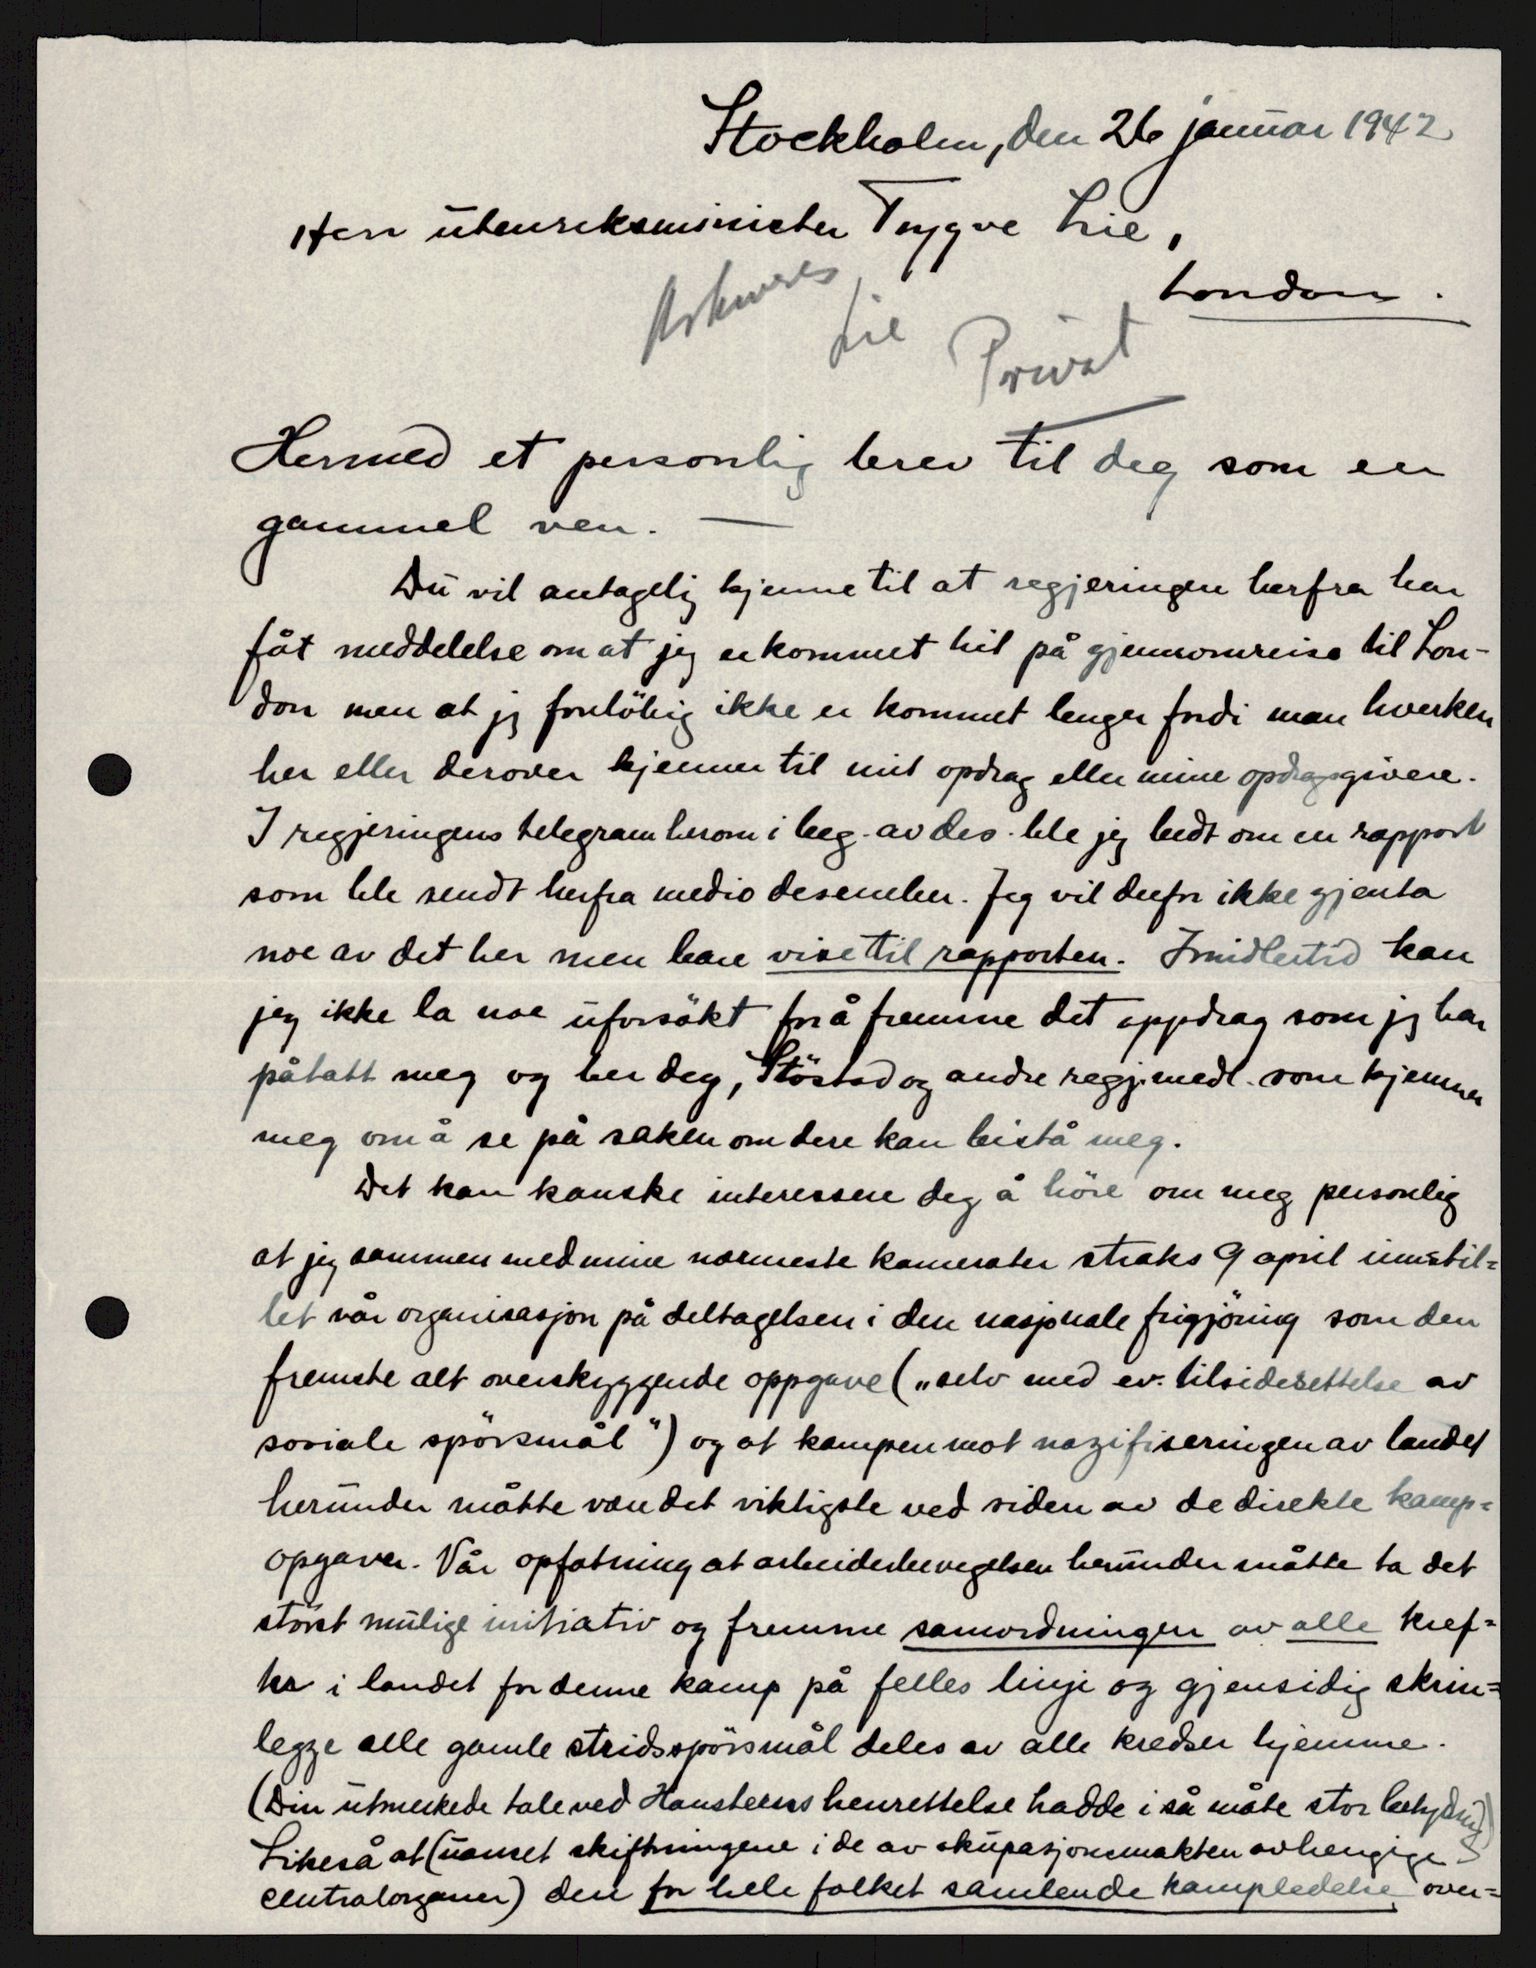 Stockholm, den 26 januar 1942
Herr utenriksminister Trygve Lie,
London.
Arkiveres
Lie
Privat
Hermed et personlig brev til deg som en
gammel ven. —
Du vil antagelig kjenne til at regjeringen herfra har
fåt meddelelse om at jeg er kommet hit på gjennomreise til Lon-
don men at jeg foreløbig ikke er kommet lenger fordi man hverken
her eller derover kjenner til mit opdrag eller mine opdragsgivere.
I regjeringens telegram herom i beg. av des. ble jeg bedt om en rapport
som ble sendt herfra medio desember. Jeg vil derfor ikke gjenta
noe av det her men bare vise til rapporten. Imidlertid kan
jeg ikke la noe uforsökt for å fremme det oppdrag som jeg har
påtatt meg og ber deg, Störstad og andre regj.medl. som kjenner
meg om å se på saken om dere kan bistå meg.
Det kan kanske interessere deg å höre om meg personlig
at jeg sammen med mine nærmeste kamerater straks 9 april innstil=
let vår organisasjon på deltagelsen i den nasjonale frigjöring som den
fremste alt overskyggende oppgave („selv med ev. tilsidesettelse av
sosiale spörsmål") og at kampen mot nazifiseringen av landet
herunder måtte være det viktigste ved siden av de direkte kamp=
opgaver. Vår opfatning at arbeiderbevegelsen herunder måtte ta det
störst mulige initiativ og fremme samordningen av alle kref=
ter i landet for denne kamp på felles linje og gjensidig skrin=
legge alle gamle stridsspörsmål deles av alle kredser hjemme.
(Din utmerkede tale ved Hansteens henrettelse hadde i så måte stor betydning)
Likeså at (uanset skiftningene i de av okupasjonsmakten avhengige
centralorganer) den for hele folket samlende kampledelse over=